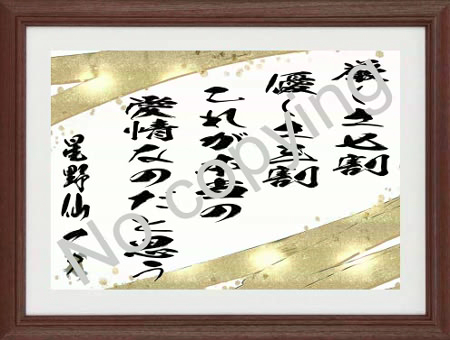 厳しさ七割
優しさ三割
これが本当の
愛情なのだと思う
星野仙一
No copying